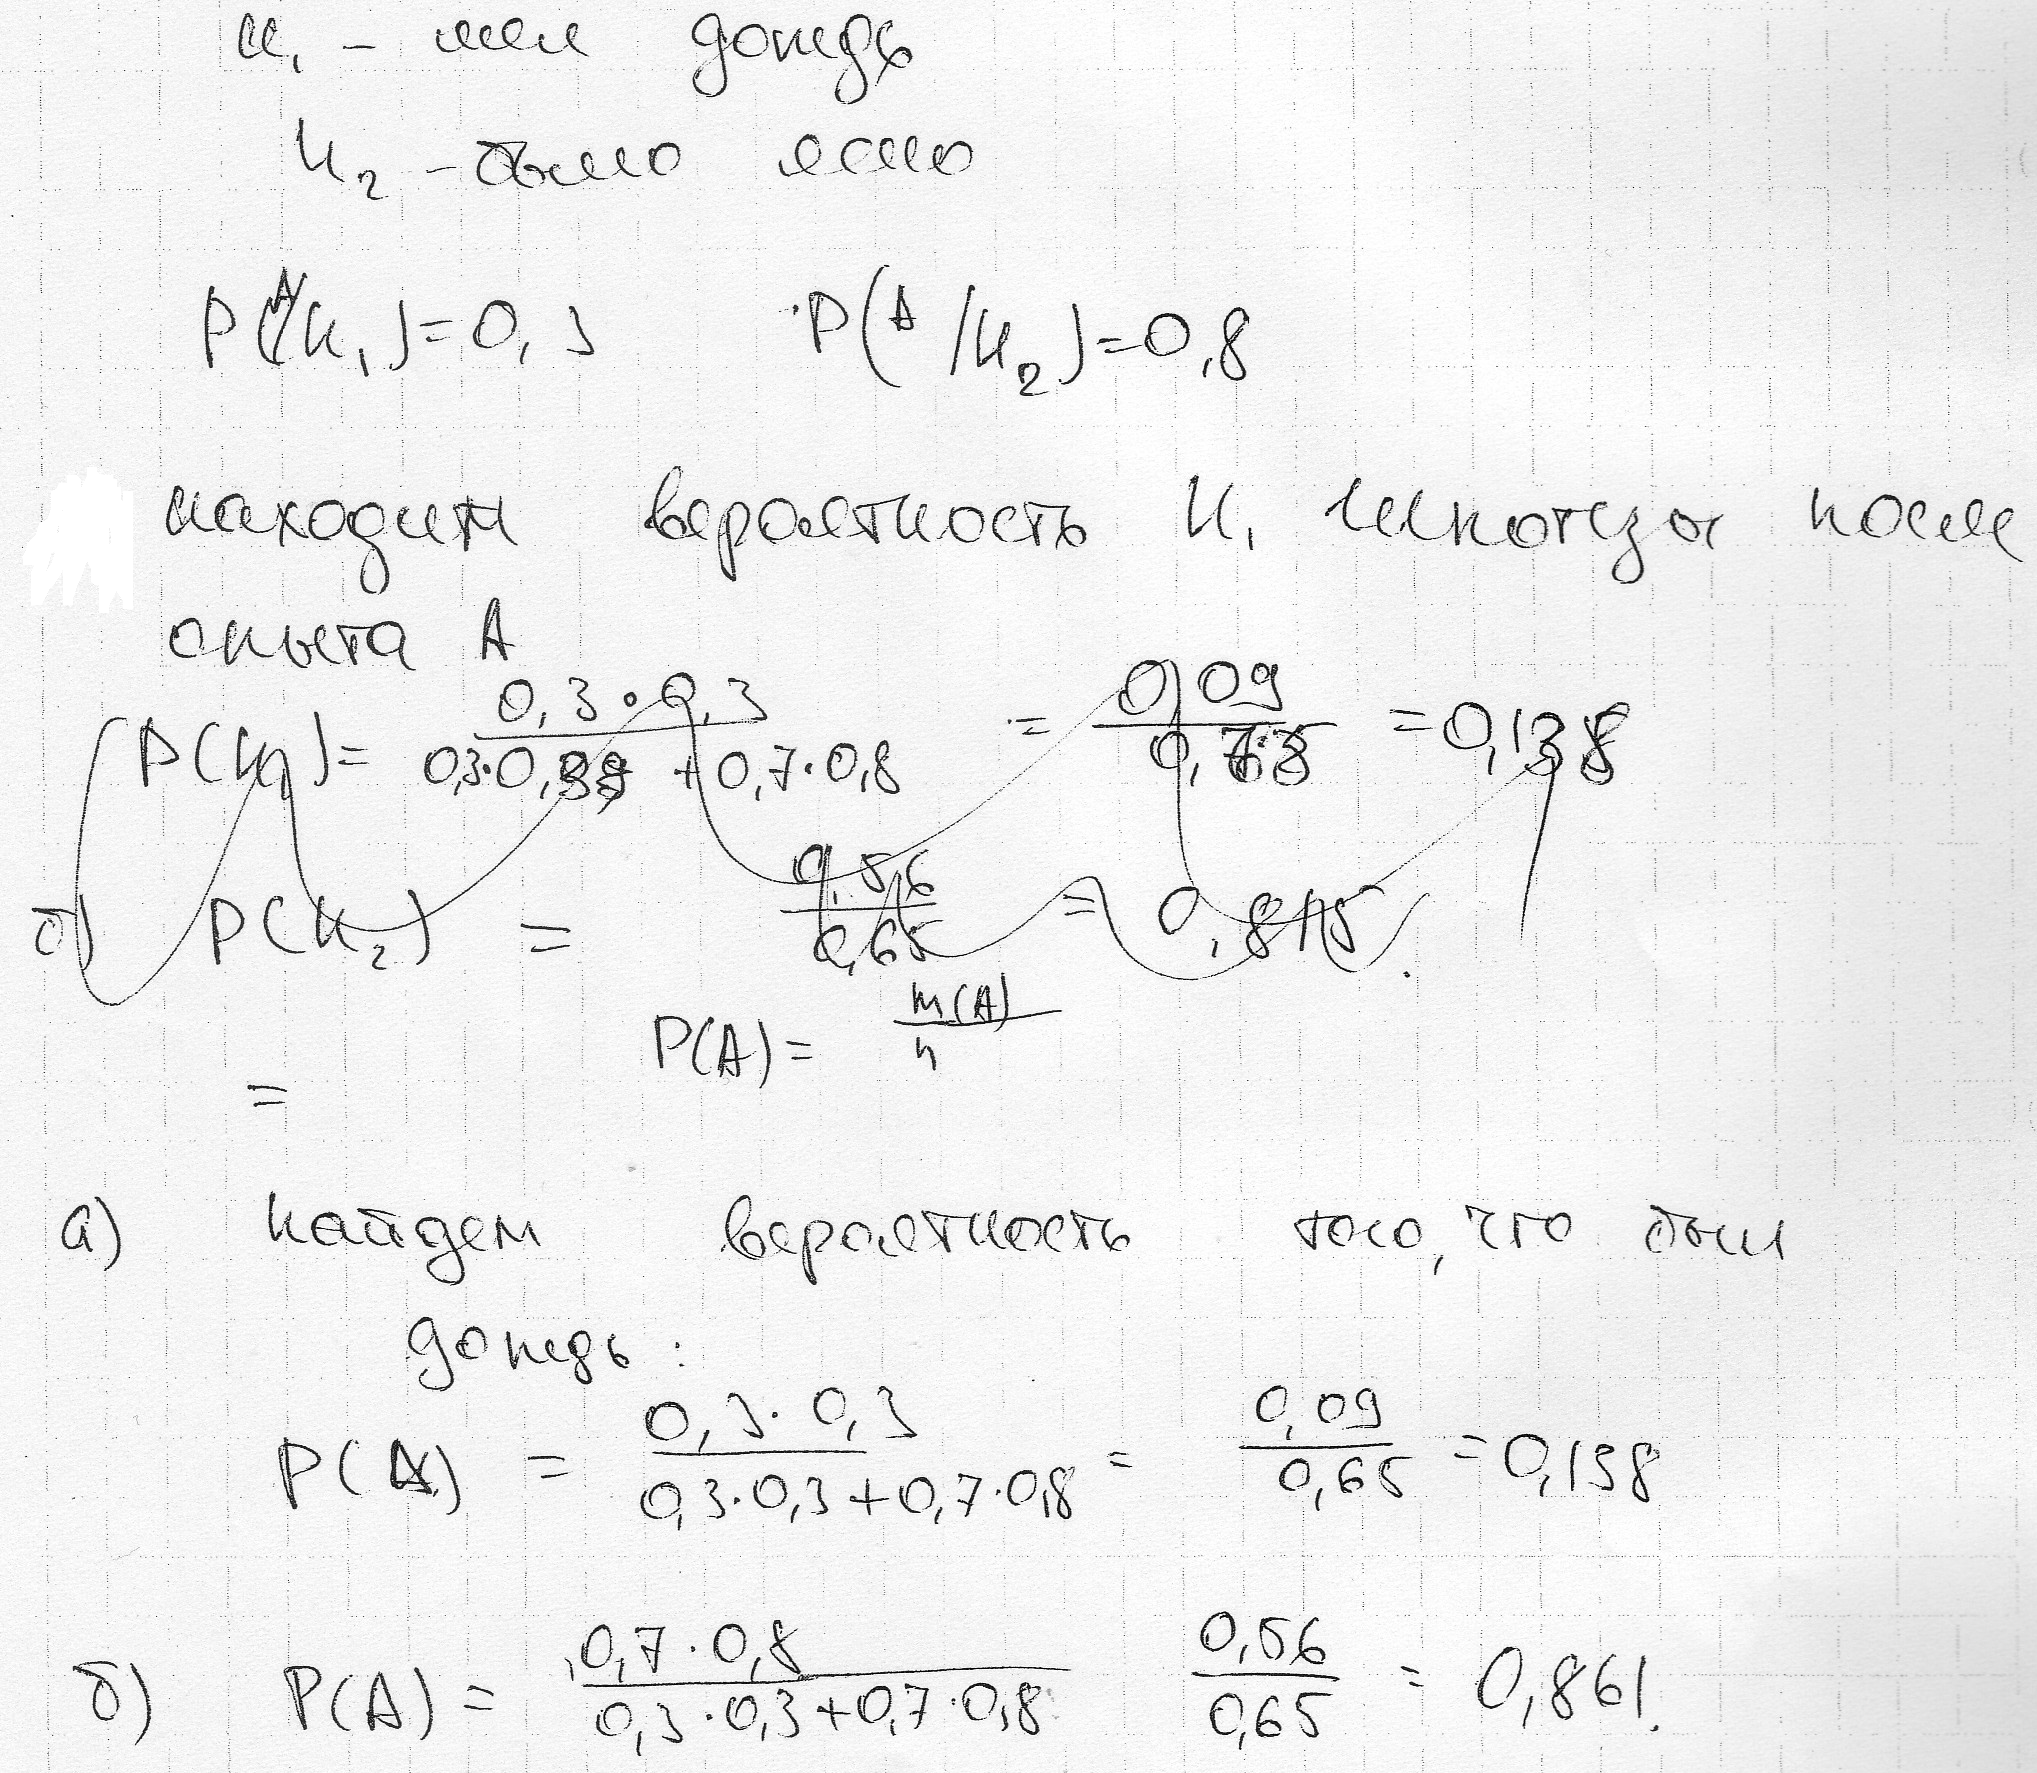 H₁ - шел дождь
H₂ - было ясно
P(A/H₁) = 0,3 P(A/H₂) = 0,8
находим вероятность H₁ гипотезы после
опыта A
P(H₁) = 0,3·0,3 / 0,3·0,3 + 0,7·0,8 = 0,09 / = 0,138
б) P(H₂) = 0,56 / 0,65 = 0,815.
P(A) = m(A) / n
=
а) найдем вероятность того, что был
дождь:
P(A) = 0,3·0,3 / 0,3·0,3+0,7·0,8 = 0,09 / 0,65 = 0,138
б) P(A) = 0,7·0,8 / 0,3·0,3+0,7·0,8 0,56 / 0,65 = 0,861.